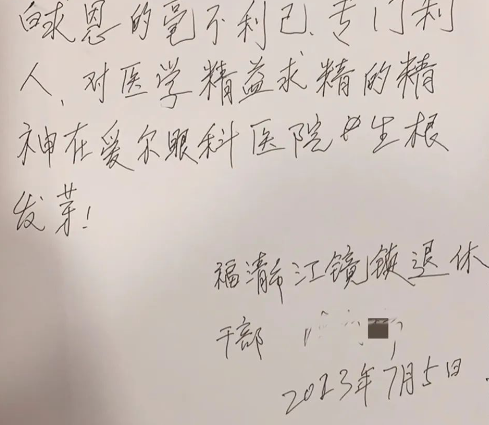 白求恩的毫不利己、专门利
人、对医学精益求精的精
神在爱尔眼科医院中生根
发芽！
福清市江镜镇退休
干部
2023年7月5日